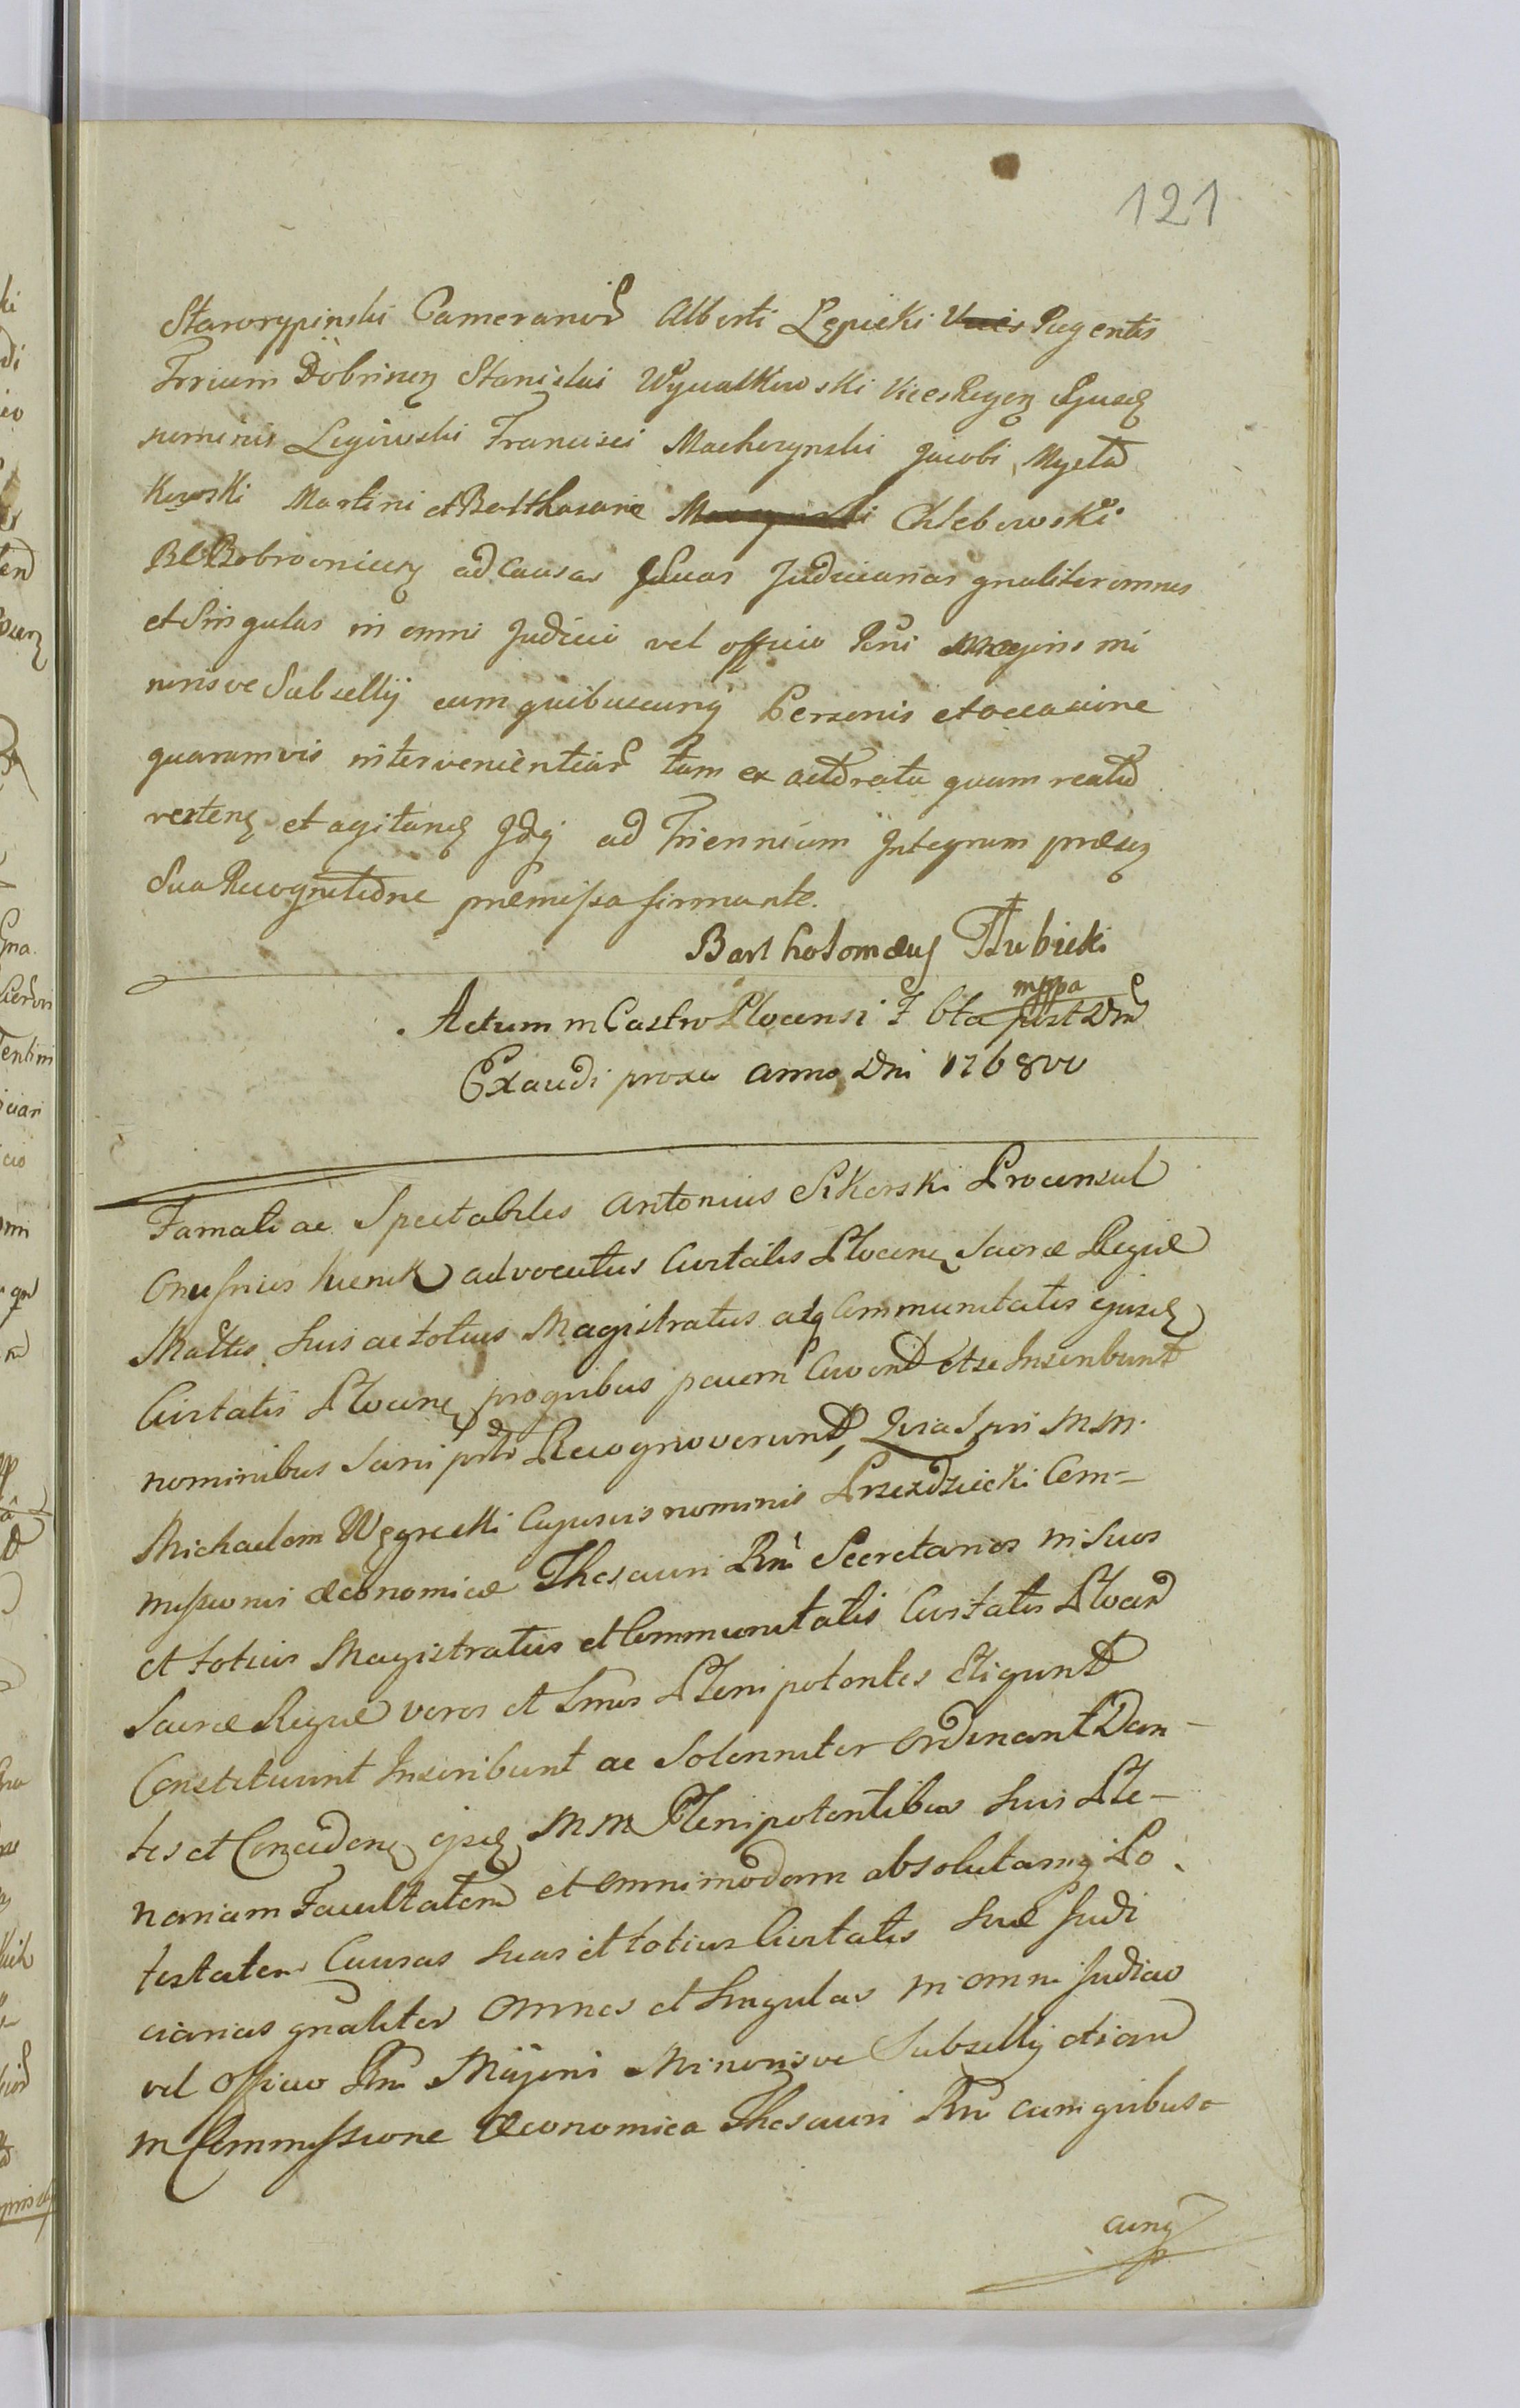 121
Starorypinski Cameranior Alberti Lępicki Vices Regentis
Trrium Dobrinen Stanislai Wyualkowski Vices Regen Cujusq
nominis Legiowski Francisci Machczynski Jacobi Mycta
kowski Martini et Balthasaris Chlebowski
Bobrovnicen ad Causas Suas Judiciarias gnaliter omnes
et Singulas in omni Judicio vel officio Rni Majoris mi
norisve Subsellij cum quibuscunq Personis et occasione
quarumvis intervenientiar tam ex actoratu quam reatu
verten et agitan Idq ad Triennium Integrum præsen
Sua Recognitione præmissa firmante.
Bartholomæus Tłubicki
mppa
Actum in Castro Plocensi F 6ta post Dni
Exaudi proxa anno Dni 1768vo
Famati ac Spectabiles Antonius Sikorski Proconsul
Onufrius Kienik advocatus Civitatis Plocen Sacræ Regiæ
Mattis suis ac totius Magistratus atq Communitatis ejusd
Civitatis Plocen pro quibus pacem Cavend et se Inscribunt
nominibus Sani Recognoverunt Quia Ipsi MM.
Michaelem Węgrecki Cujusvis nominis Przezdziecki Com=
missionis œconomicæ Thesauri Rni Secretarios in Suos
et totius Magistratus et Communitatis Civitatis Plocen
Sacræ Regiæ veros et Lmos Plenipotentes Eligunt
Constituunt Inscribunt ac Solenniter Ordinant Dan-
tes et Conceden ejsd MM Plenipotentibus suis Ple-
nariam Facultatem et omnimodam absolutamq Po
testatem Causas suas et totius Civitatis suæ Judi
ciarias gnaliter omnes et Singulas in omni Judicio
vel Officio Rni Majoris Minorisve Subsellij etiam
in Commissione Œconomica Thesauri Rni cum quibus=
cunq